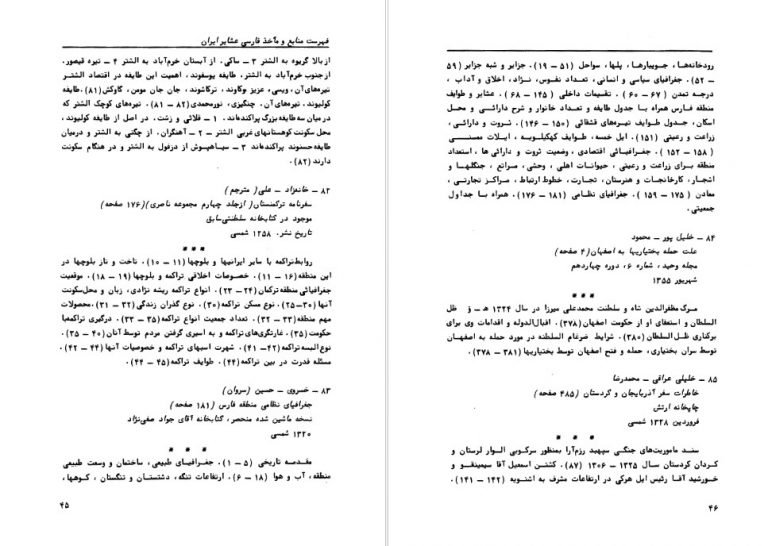 فهرست منابع و مآخذ فارسی عشایر ایران
از بالا گریوه به الشتر ۳ ــ ساکی. از آبستان خرم‌آباد به الشتر ۴ ــ تیره قیصور.
از جنوب خرم‌آباد به الشتر، طایفه یوسفوند، اهمیت این طایفه در اقتصاد الشتـر
تیره‌های آن، ویسی، عزیز وکاوند، ترکاشوند، جان جان مومن، گاوکش (۸۱). طایفه
کولیوند، تیره‌های آن. چنگیزی، نورمحمدی (۸۲ ــ ۸۱). تیره‌های کوچک الشتر که
در میان سه طایفه بزرگ پراکنده‌اند. ۱ ــ فلائی و زشت، در اصل از طایفه کولیوند،
محل سکونت کوهستانهای غربی الشتر ــ ۲ ــ آهنگران. از چگنی به الشتر و درمیان
طایفه حسنوند پراکنده‌اند ۳ ــ سیاهپوش از دزفول به الشتر و در هنگام سکونت
دارند (۸۲)
۸۲ ــ خانه‌زاد ــ علی (مترجم)
سفرنامه ترکمنستان (ازجلد چهارم مجموعه ناصری) (۱۷۶ صفحه)
موجود در کتابخانه سلطنتی سابق
تاریخ نشر. ۱۲۵۸ شمسی
* * *
روابط تراکمه با سایر ایرانیها و بلوچها (۱۱ ــ ۱۰). تاخت و تاز بلوچها در
این منطقه (۱۶ ــ ۱۱). خصوصات اخلاقی تراکمه و بلوچها (۱۹ ــ ۱۸). موقعیت
جغرافیائی منطقه ترکمان (۲۴ ــ ۲۳). انواع تراکمه ریشه نژادی، زبان و محل سکونت
آنها (۳۰ــ۲۵). نوع مسکن تراکمه (۳۰). نوع گذران زندگی (۳۲ ــ ۳۱). محصولات
مهم منطقه (۳۳ ــ ۳۲). تعداد جمعیت انواع تراکمه (۳۵ ــ ۳۳). درگیری تراکمه با
حکومت (۳۵). غارتگری‌های تراکمه و به اسیری گرفتن مردم توسط آنان (۴۰ ــ ۳۵).
نوع البسه تراکمه (۴۲ــ۴۱). شهرت اسبهای تراکمه و خصوصیات آنها (۴۴ ــ ۴۲).
مسئله قدرت در بین تراکمه (۴۴). طوایف تراکمه (۴۵ ــ ۴۴).
۸۳ ــ خسروی ــ حسین (سروان)
جغرافیای نظامی منطقه فارس (۱۸۱ صفحه)
نسخه ماشین شده منحصر، کتابخانه آقای جواد صفی‌نژاد
۱۳۲۰ شمسی
* * *
مقدمه تاریخی (۵ ــ ۱). جغرافیای طبیعی، ساختمان و وسعت طبیعی
منطقه، آب و هوا (۱۸ ــ ۶). ارتفاعات تنگه، دشتستان و تنگستان، کوهها،
۴۵
رودخانه‌ها، جویبارها، پلها، سواحل (۵۱ ــ ۱۹). جزایر و شبه جزایر (۵۹
ــ ۵۲). جغرافیای سیاسی و انسانی، تعداد نفوس، نژاد، اخلاق و آداب،
درجه تمدن (۶۷ ــ ۶۰). تقسیمات داخلی (۱۴۵ ــ ۶۸). عشایر و طوایف
منطقه فارس همراه با جدول طایفه و تعداد خانوار و شرح دارائی و محل
اسکان، جدول طوایف تیره‌های قشقائی (۱۵۰ ــ ۱۴۶). ثروت و دارائی،
زراعت و رعیتی (۱۵۱). ایل خمسه، طوایف کهکیلویـه، ایلات ممسنـی
(۱۵۸ ــ ۱۵۲). جغرافیـائی اقتصادی، وضعیت ثروت و دارائی ها، استعداد
منطقه برای زراعت و رعیتی، حیوانات اهلی، وحشی، مراتع، جنگلها و
اشجار، کارخانجات و هنرستان، تجارت، خطوط ارتباط، مراکز تجارتی،
معادن (۱۷۵ ــ ۱۵۹). جغرافیای نظامی (۱۸۱ ــ ۱۷۶). همراه با جداول
جمعیتی.
۸۴ ــ خلیل پور ــ محمود
علت حمله بختیاریها به اصفهان (۴ صفحه)
مجله وحید، شماره ۶، دوره چهاردهم
شهریور ۱۳۵۵
* * *
مـرگ مظفرالدین شاه و سلطنت محمدعلی میرزا در سال ۱۳۲۴ هـ ق ظل
السلطان و استعفای او از حکومت اصفهان (۳۷۸). اقبال‌الدوله و اقدامات وی برای
برکناری ظل السلطان (۳۸۰). شرایط ضرغام السلطنه در مورد حمله به اصفهـان
توسط سران بختیاری، حمله و فتح اصفهان توسط بختیاریها (۳۸۱ ــ ۳۷۸).
۸۵ ــ خلیلی عراقی ــ محمدرضا
خاطرات سفر آذربایجان و کردستان (۴۸۵ صفحه)
چاپخانه ارتش
فروردین ۱۳۲۸ شمسی
* * *
سنـد ماموریت‌های جنگـی سپهبد رزم‌آرا بمنظور سرکوبی الـوار لرستان و
کـردان کردستان سـال ۱۳۲۵ ــ ۱۳۰۶ (۸۷). کشتـن اسمعیل آقا سیمیتقـو و
خورشید آقـا رئیس ایل هرکی در ارتفاعات مشرف به اشنویه (۱۴۲ ــ ۱۴۱).
۴۶